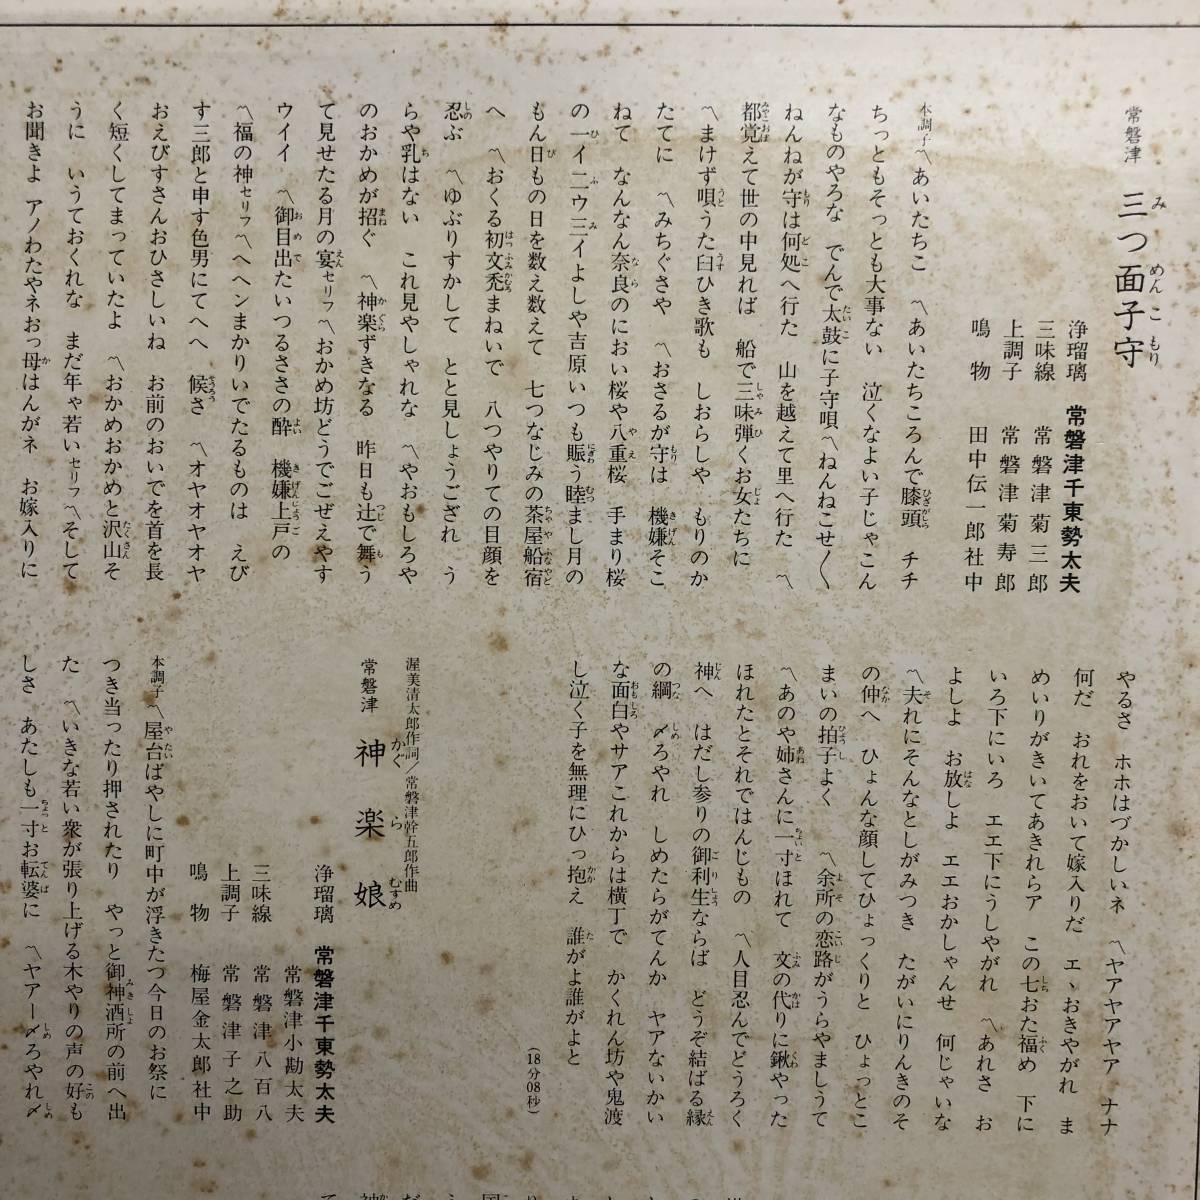 常磐津 三つ面子守
浄瑠璃 常磐津千東勢太夫
三味線 常磐津菊三郎
上調子 常磐津菊寿郎
鳴物 田中伝一郎社中
本調子〽あいたちこ 〽あいたちころんで膝頭 チチ
ちっともそっとも大事ない 泣くなよい子じゃこん
なものやろな でんで太鼓に子守唄〽ねんねこせ〱
ねんねが守は何処へ行た 山を越えて里へ行た 〽
都覚えて世の中見れば 船で三味弾くお女たちに
〽まけず唄うた臼ひき歌も しおらしや もりのか
たてに 〽みちぐさや 〽おさるが守は 機嫌そこ
ねて なんなん奈良のにおい桜や八重桜 手まり桜
の一イ二ウ三イよしや吉原いつも賑う睦まし月の
もん日もの日を数え数えて 七つなじみの茶屋船宿
へ 〽おくる初文禿まねいで 八つやりての目顔を
忍ぶ 〽ゆぶりすかして とと見しょうござれ う
らや乳はない これ見やしゃれな 〽やおもしろや
のおかめが招ぐ 〽神楽ずきなる 昨日も辻で舞う
て見せたる月の宴セリフ〽おかめ坊どうでごぜえやす
ウイイ 〽御目出たいつるささの酔 機嫌上戸の
〽福の神セリフ〽ヘヘンまかりいでたるものは えび
す三郎と申す色男にてへへ 候さ 〽オヤオヤオヤ
おえびすさんおひさしいね お前のおいでを首を長
く短くしてまっていたよ 〽おかめおかめと沢山そ
うに いうておくれな まだ年ゃ若いセリフ〽そして
お聞きよ アノわたやネおっ母はんがネ お嫁入りに
やるさ ホホはづかしいネ 〽ヤアヤアヤア ナナ
何だ おれをおいて嫁入りだ エヽおきやがれ ま
めいりがきいてあきれらア この七おた福め 下に
いろ下にいろ エエ下にうしやがれ 〽あれさ お
よしよ お放しよ エエおかしゃんせ 何じゃいな
〽夫れにそんなとしがみつき たがいにりんきのそ
の仲へ ひょんな顔してひょっくりと ひょっとこ
まいの拍子よく 〽余所の恋路がうらやましうて
〽あのや姉さんに一寸ほれて 文の代りに鍬やった
ほれたとそれではんじもの 〽人目忍んでどうろく
神へ はだし参りの御利生ならば どうぞ結ばる縁
の綱 〆ろやれ しめたらがてんか ヤアないかい
な面白やサアこれからは横丁で かくれん坊や鬼渡
し泣く子を無理にひっ抱え 誰がよ誰がよと
(18分08秒)
渥美清太郎作詞/常磐津幹五郎作曲
常磐津 神楽娘
浄瑠璃 常磐津千東勢太夫
常磐津小勘太夫
三味線 常磐津八百八
上調子 常磐津子之助
鳴物 梅屋金太郎社中
本調子〽屋台ばやしに町中が浮きたつ今日のお祭に
つき当ったり押されたり やっと御神酒所の前へ出
た 〽いきな若い衆が張り上げる木やりの声の好も
しさ あたしも一寸お転婆に 〽ヤアー〆ろやれ〆